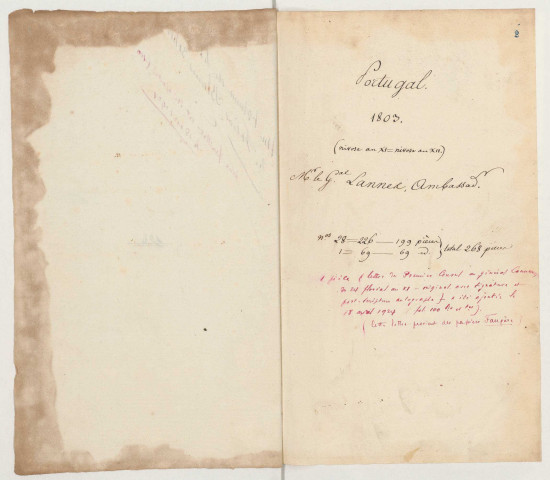 Portugal.
1803.
(nivose an XI = nivose an XII.)
Mr. le Gral Lannes, Ambassadr.
Nos 28 = 226 — 199 pièces
1 = 69 — 69 d.
total 268 pieces
1 pièce (lettre du Premier Consul au général Lannes,
du 24 floréal an XI - original avec signature et
post-scriptum autographe) a été ajoutée le
18 avril 1924 fol 100
(Cette lettre provient des papiers